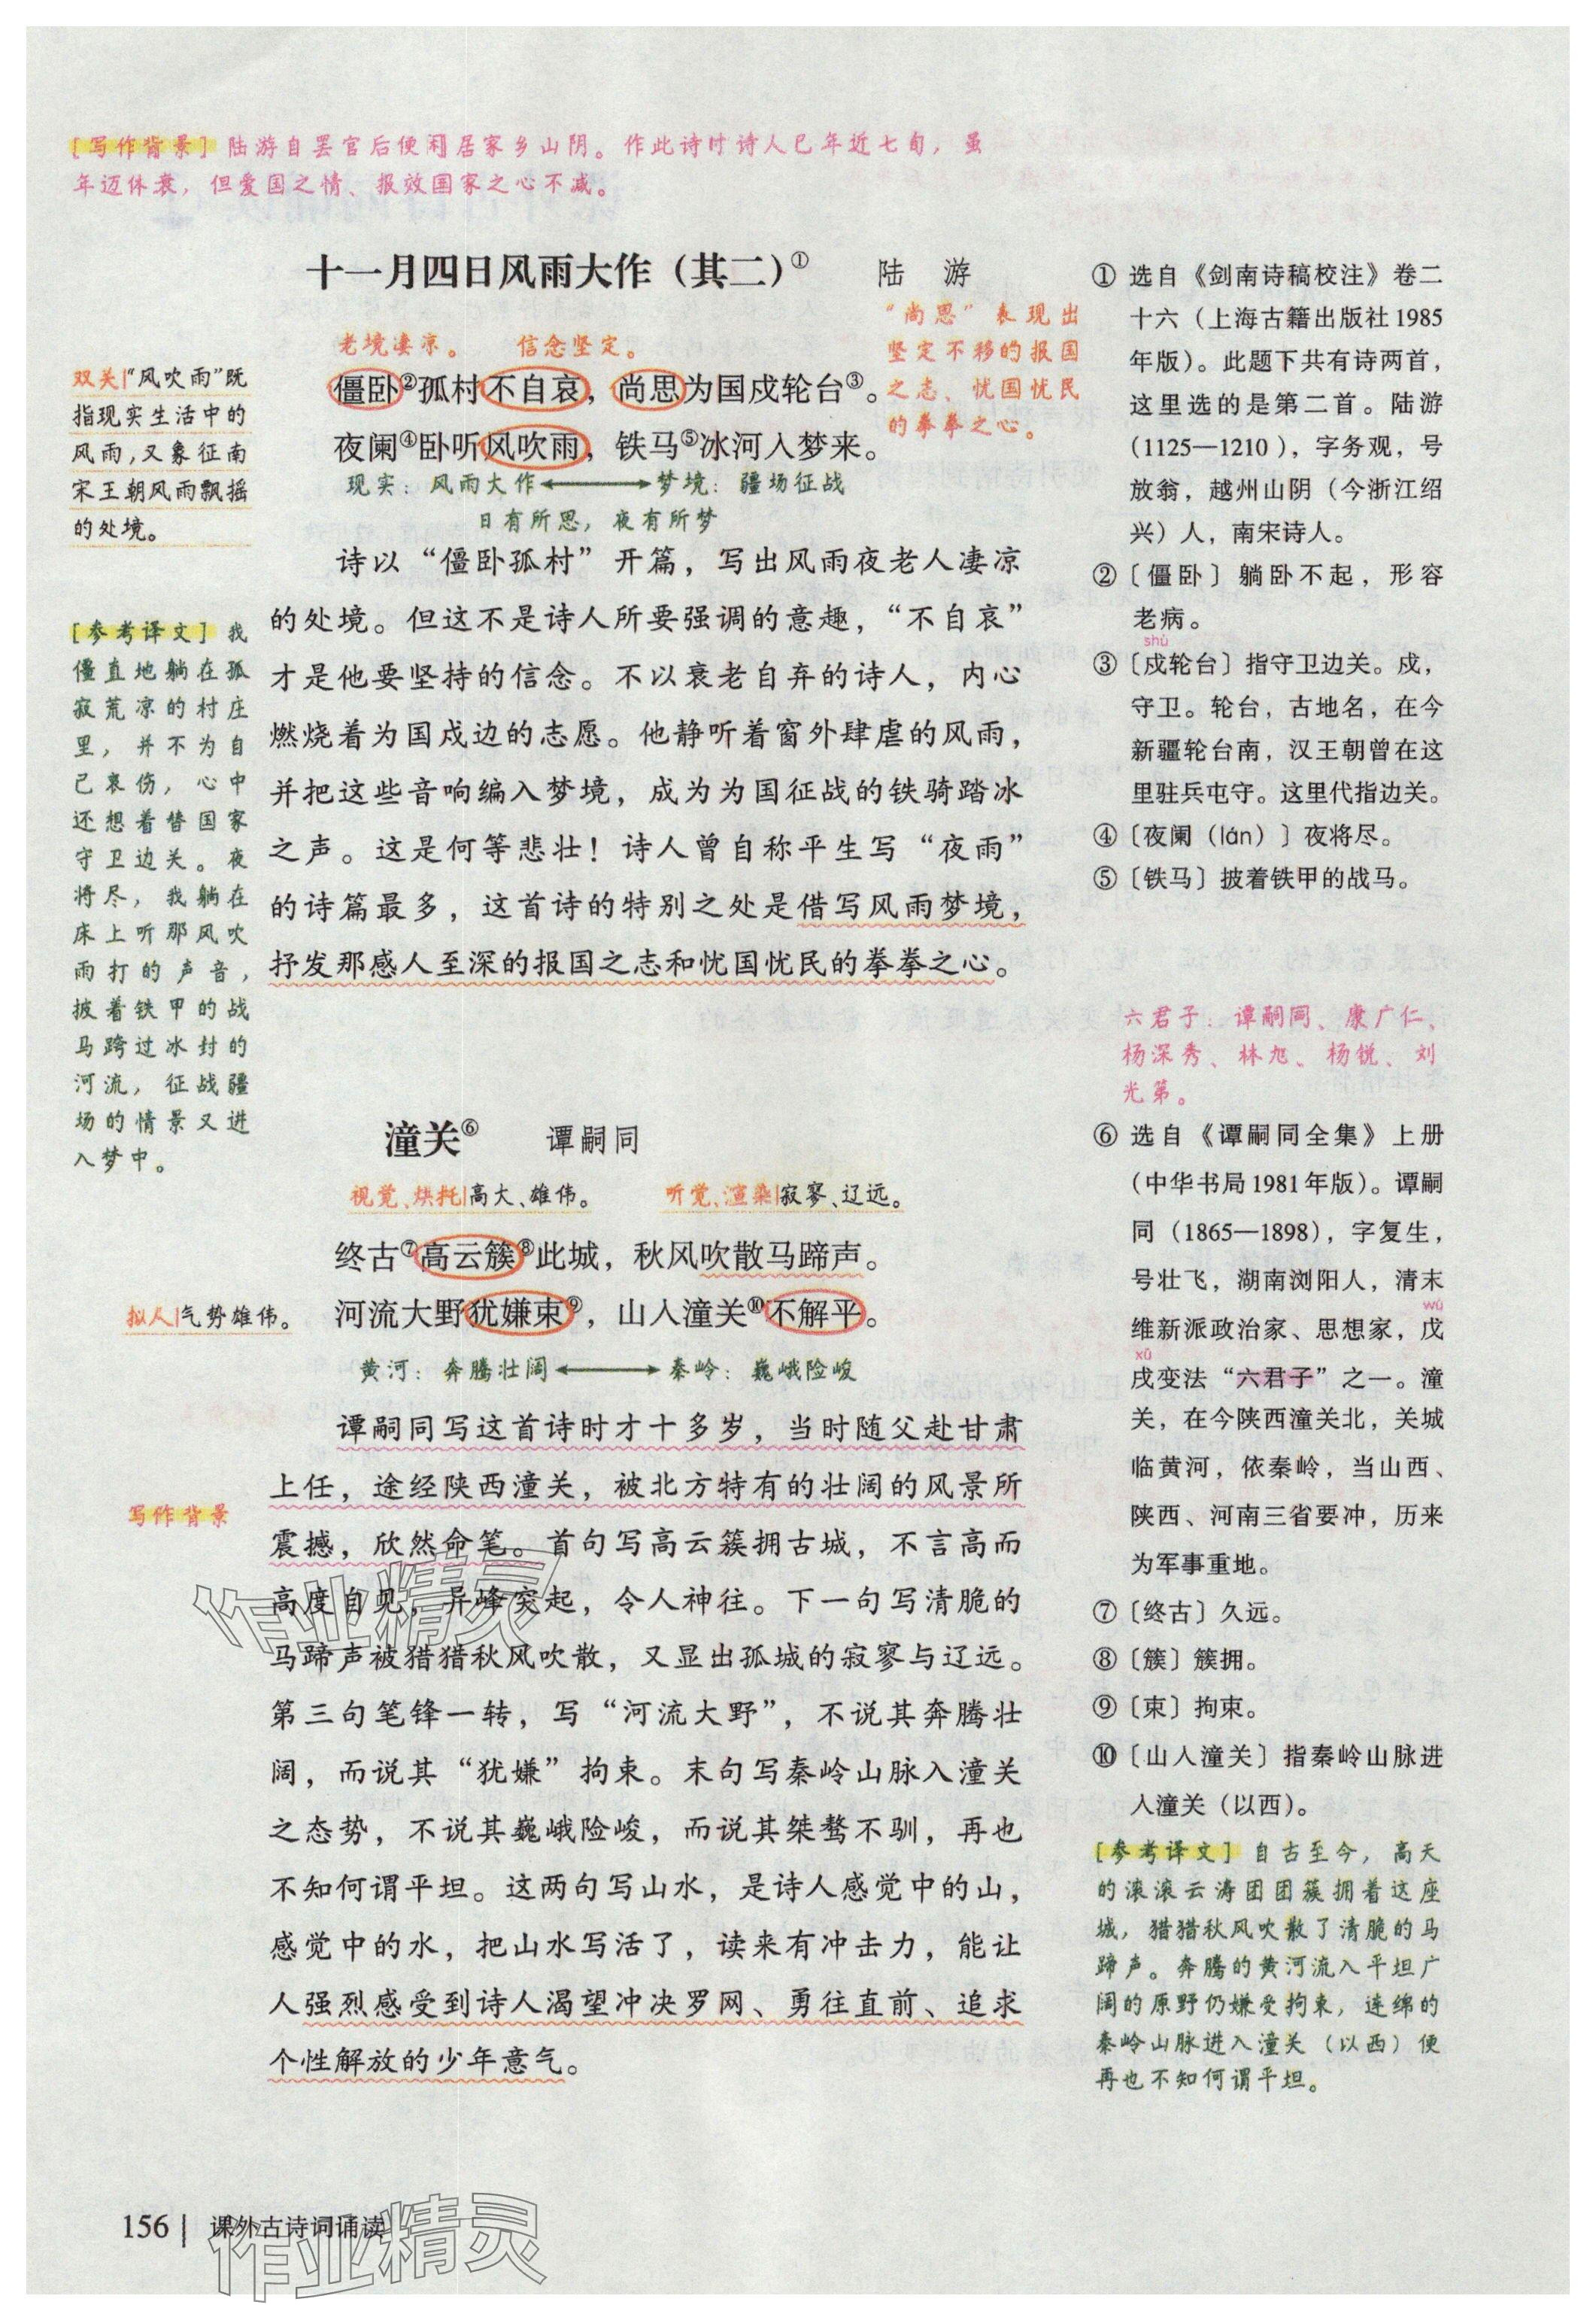 [写作背景] 陆游自罢官后便闲居家乡山阴。作此诗时诗人已年近七旬，虽
年迈体衰，但爱国之情、报效国家之心不减。
十一月四日风雨大作（其二）① 陆 游
“尚思”表现出
坚定不移的报国
之志、忧国忧民
的拳拳之心。
老境凄凉。 信念坚定。
僵卧②孤村不自哀，尚思为国戍轮台③。
夜阑④卧听风吹雨，铁马⑤冰河入梦来。
现实：风雨大作 梦境：疆场征战
日有所思，夜有所梦
双关|“风吹雨”既
指现实生活中的
风雨，又象征南
宋王朝风雨飘摇
的处境。
诗以“僵卧孤村”开篇，写出风雨夜老人凄凉
的处境。但这不是诗人所要强调的意趣，“不自哀”
才是他要坚持的信念。不以衰老自弃的诗人，内心
燃烧着为国戍边的志愿。他静听着窗外肆虐的风雨，
并把这些音响编入梦境，成为为国征战的铁骑踏冰
之声。这是何等悲壮！诗人曾自称平生写“夜雨”
的诗篇最多，这首诗的特别之处是借写风雨梦境，
抒发那感人至深的报国之志和忧国忧民的拳拳之心。
[参考译文] 我
僵直地躺在孤
寂荒凉的村庄
里，并不为自
己哀伤，心中
还想着替国家
守卫边关。夜
将尽，我躺在
床上听那风吹
雨打的声音，
披着铁甲的战
马跨过冰封的
河流，征战疆
场的情景又进
入梦中。
① 选自《剑南诗稿校注》卷二
十六（上海古籍出版社1985
年版）。此题下共有诗两首，
这里选的是第二首。陆游
（1125—1210），字务观，号
放翁，越州山阴（今浙江绍
兴）人，南宋诗人。
②〔僵卧〕躺卧不起，形容
老病。
shù
③〔戍轮台〕指守卫边关。戍，
守卫。轮台，古地名，在今
新疆轮台南，汉王朝曾在这
里驻兵屯守。这里代指边关。
④〔夜阑（lán）〕夜将尽。
⑤〔铁马〕披着铁甲的战马。
潼关⑥ 谭嗣同
视觉、烘托|高大、雄伟。 听觉、渲染|寂寥、辽远。
终古⑦高云簇⑧此城，秋风吹散马蹄声。
拟人|气势雄伟。
河流大野犹嫌束⑨，山入潼关⑩不解平。
黄河：奔腾壮阔 秦岭：巍峨险峻
写作背景
谭嗣同写这首诗时才十多岁，当时随父赴甘肃
上任，途经陕西潼关，被北方特有的壮阔的风景所
震撼，欣然命笔。首句写高云簇拥古城，不言高而
高度自见，异峰突起，令人神往。下一句写清脆的
马蹄声被猎猎秋风吹散，又显出孤城的寂寥与辽远。
第三句笔锋一转，写“河流大野”，不说其奔腾壮
阔，而说其“犹嫌”拘束。末句写秦岭山脉入潼关
之态势，不说其巍峨险峻，而说其桀骜不驯，再也
不知何谓平坦。这两句写山水，是诗人感觉中的山，
感觉中的水，把山水写活了，读来有冲击力，能让
人强烈感受到诗人渴望冲决罗网、勇往直前、追求
个性解放的少年意气。
六君子：谭嗣同、康广仁、
杨深秀、林旭、杨锐、刘
光第。
⑥ 选自《谭嗣同全集》上册
（中华书局1981年版）。谭嗣
同（1865—1898），字复生，
号壮飞，湖南浏阳人，清末
wù
维新派政治家、思想家，戊
xū
戌变法“六君子”之一。潼
关，在今陕西潼关北，关城
临黄河，依秦岭，当山西、
陕西、河南三省要冲，历来
为军事重地。
⑦〔终古〕久远。
⑧〔簇〕簇拥。
⑨〔束〕拘束。
⑩〔山入潼关〕指秦岭山脉进
入潼关（以西）。
[参考译文] 自古至今，高天
的滚滚云涛团团簇拥着这座
城，猎猎秋风吹散了清脆的马
蹄声。奔腾的黄河流入平坦广
阔的原野仍嫌受拘束，连绵的
秦岭山脉进入潼关（以西）便
再也不知何谓平坦。
作业精灵
156 | 课外古诗词诵读
作业精灵